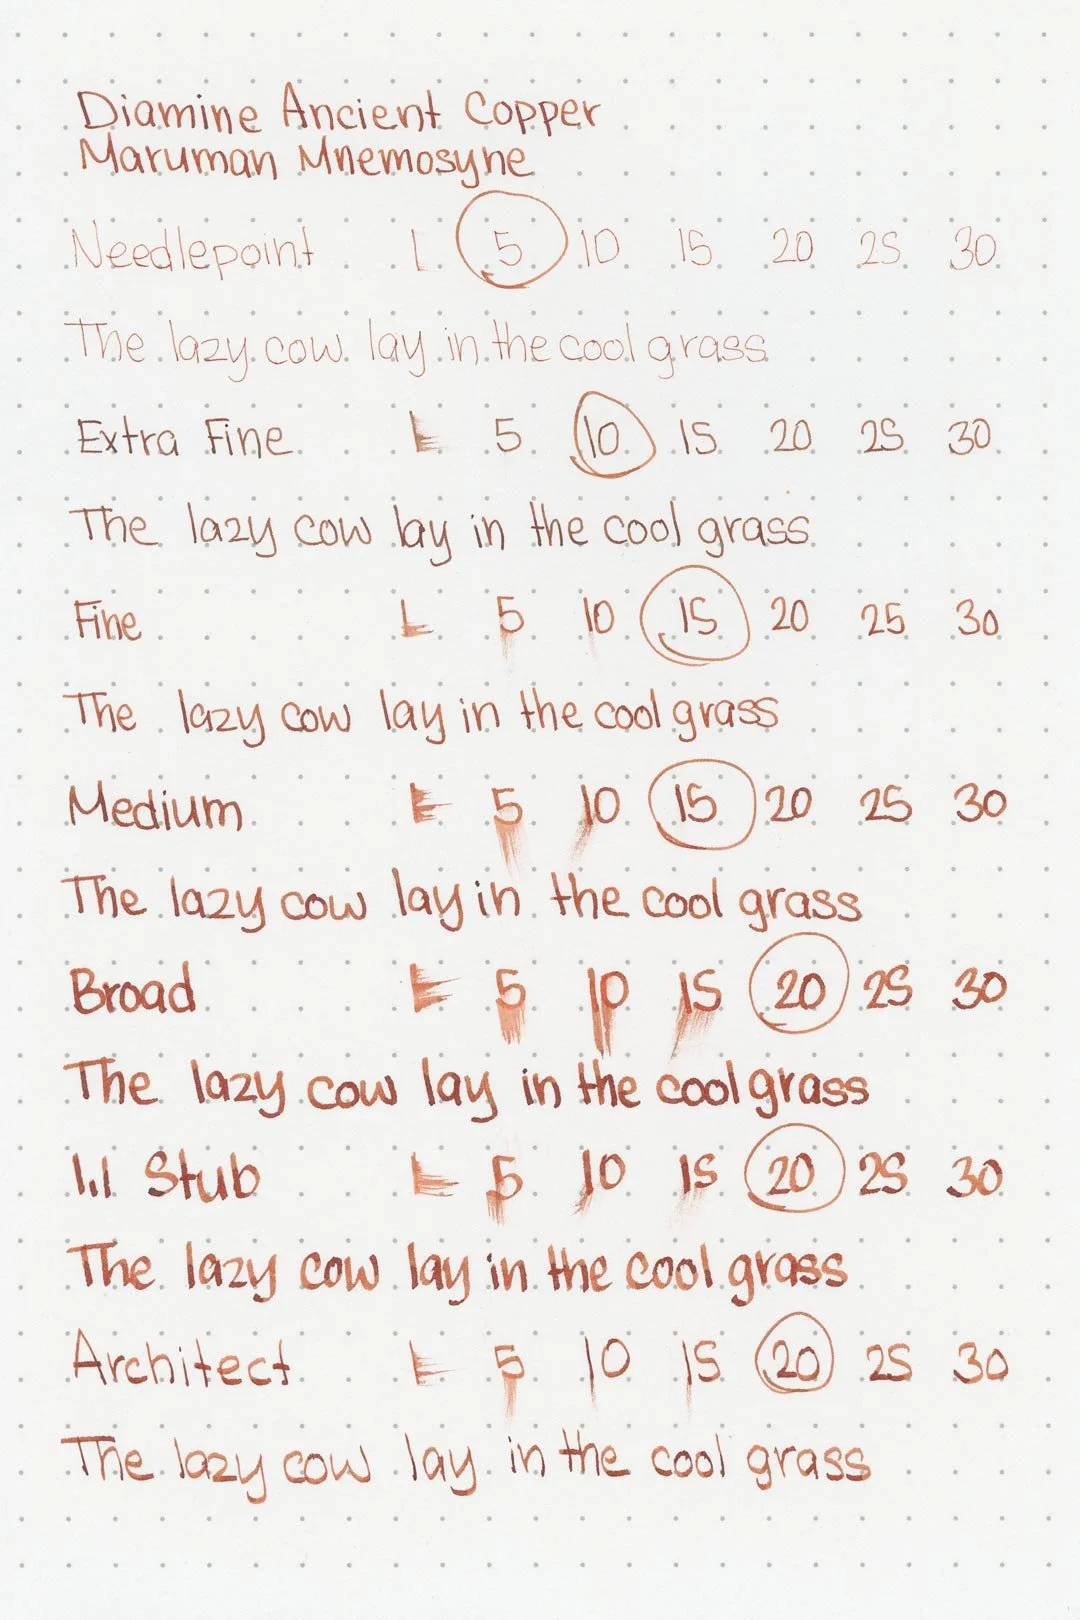 Diamine Ancient Copper
Maruman Mnemosyne
Needlepoint L 5 10 15 20 25 30
The lazy cow lay in the cool grass
Extra Fine L 5 10 15 20 25 30
The lazy cow lay in the cool grass
Fine L 5 10 15 20 25 30
The lazy cow lay in the cool grass
Medium L 5 10 15 20 25 30
The lazy cow lay in the cool grass
Broad L 5 10 15 20 25 30
The lazy cow lay in the cool grass
1.1 Stub L 5 10 15 20 25 30
The lazy cow lay in the cool grass
Architect L 5 10 15 20 25 30
The lazy cow lay in the cool grass